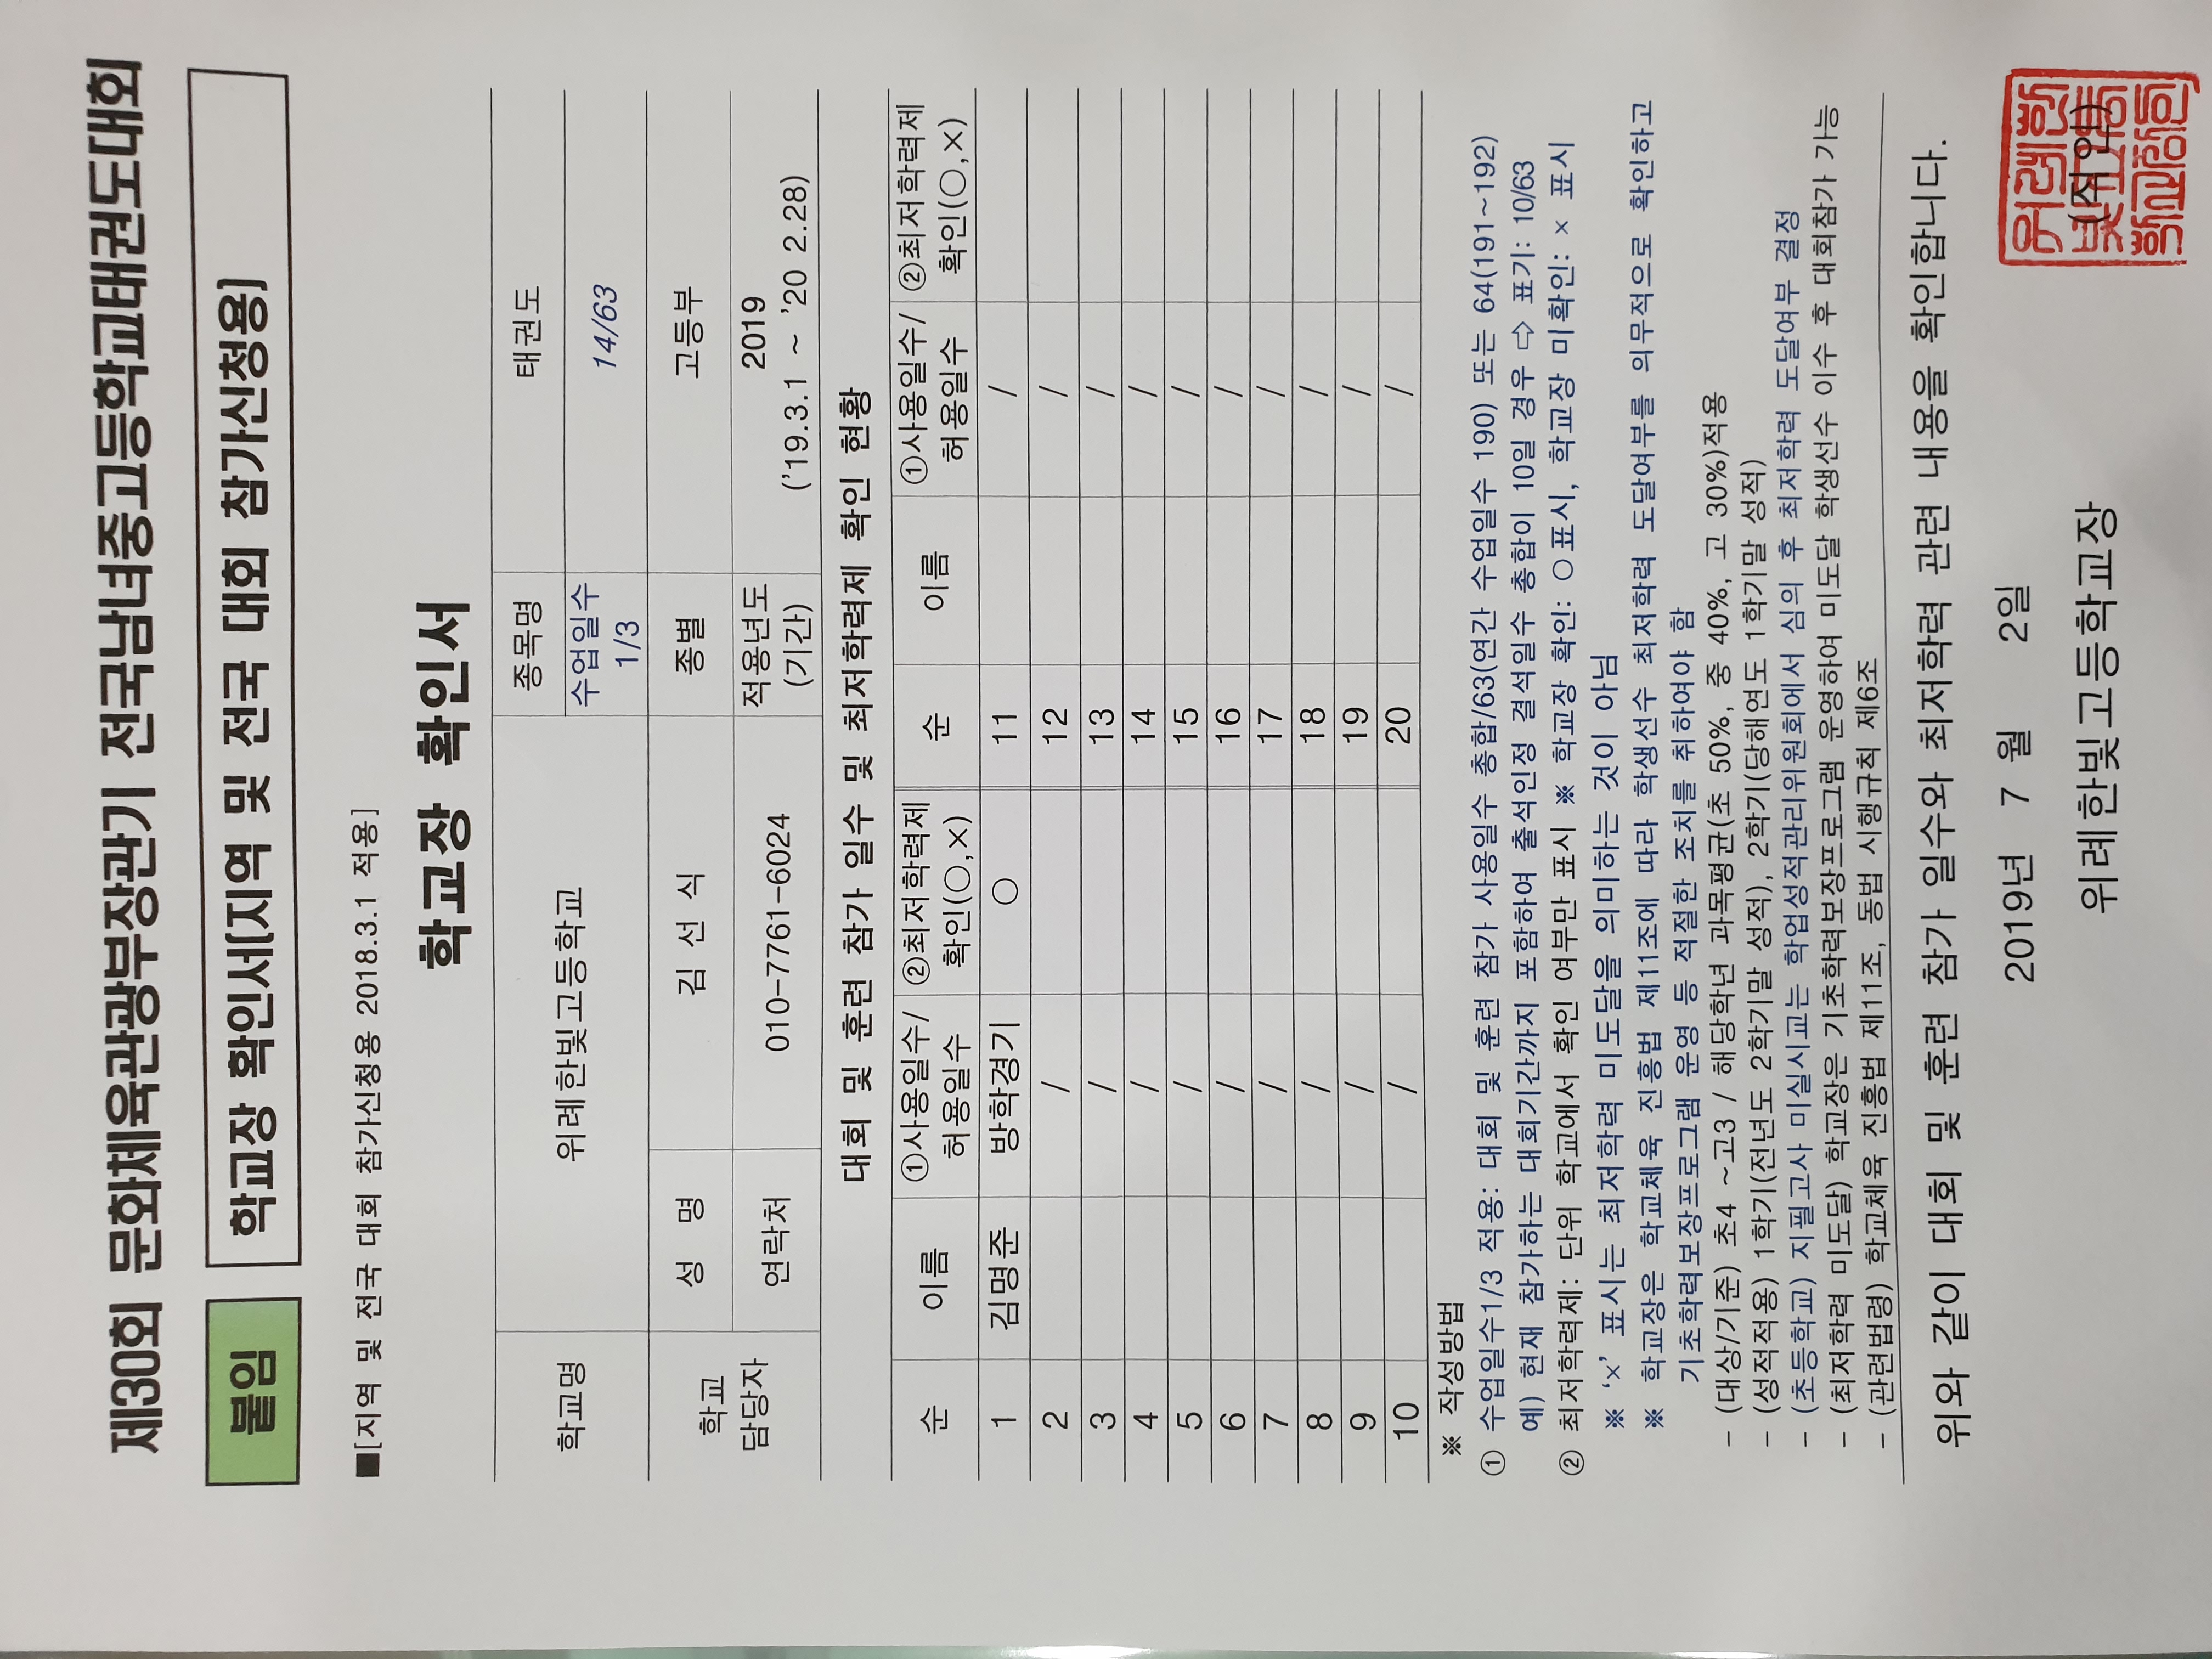 제30회 문화체육관광부장관기 전국남녀중고등학교태권도대회
붙임 학교장 확인서[지역 및 전국 대회 참가신청용]
■[지역 및 전국 대회 참가신청용 2018.3.1 적용]
학교장 확인서
학교명 위례한빛고등학교 종목명 태권도
수업일수 1/3 14/63
학교 담당자 성 명 김 선 식 종별 고등부
연락처 010-7761-6024 적용년도 (기간) 2019 ('19.3.1 ~ '20 2.28)
대회 및 훈련 참가 일수 및 최저학력제 확인 현황
순 이름 ①사용일수/허용일수 ②최저학력제 확인(○,×) 순 이름 ①사용일수/허용일수 ②최저학력제 확인(○,×)
1 김명준 방학경기 ○ 11 /
2 / 12 /
3 / 13 /
4 / 14 /
5 / 15 /
6 / 16 /
7 / 17 /
8 / 18 /
9 / 19 /
10 / 20 /
※ 작성방법
① 수업일수1/3 적용: 대회 및 훈련 참가 사용일수 총합/63(연간 수업일수 190) 또는 64(191~192)
예) 현재 참가하는 대회기간까지 포함하여 출석인정 결석일수 총합이 10일 경우 ⇨ 표기: 10/63
② 최저학력제: 단위 학교에서 확인 여부만 표시 ※ 학교장 확인: ○표시, 학교장 미확인: × 표시
※ '×' 표시는 최저학력 미도달을 의미하는 것이 아님
※ 학교장은 학교체육 진흥법 제11조에 따라 학생선수 최저학력 도달여부를 의무적으로 확인하고
기초학력보장프로그램 운영 등 적절한 조치를 취하여야 함
- (대상/기준) 초4 ~고3 / 해당학년 과목평균(초 50%, 중 40%, 고 30%)적용
- (성적적용) 1학기(전년도 2학기말 성적), 2학기(당해연도 1학기말 성적)
- (초등학교) 지필고사 미실시교는 학업성적관리위원회에서 심의 후 최저학력 도달여부 결정
- (최저학력 미도달) 학교장은 기초학력보장프로그램 운영하여 미도달 학생선수 이수 후 대회참가 가능
- (관련법령) 학교체육 진흥법 제11조, 동법 시행규칙 제6조
위와 같이 대회 및 훈련 참가 일수와 최저학력 관련 내용을 확인합니다.
2019년 7 월 2일
위례한빛고등학교장 (직인)
위례한빛고등학교장